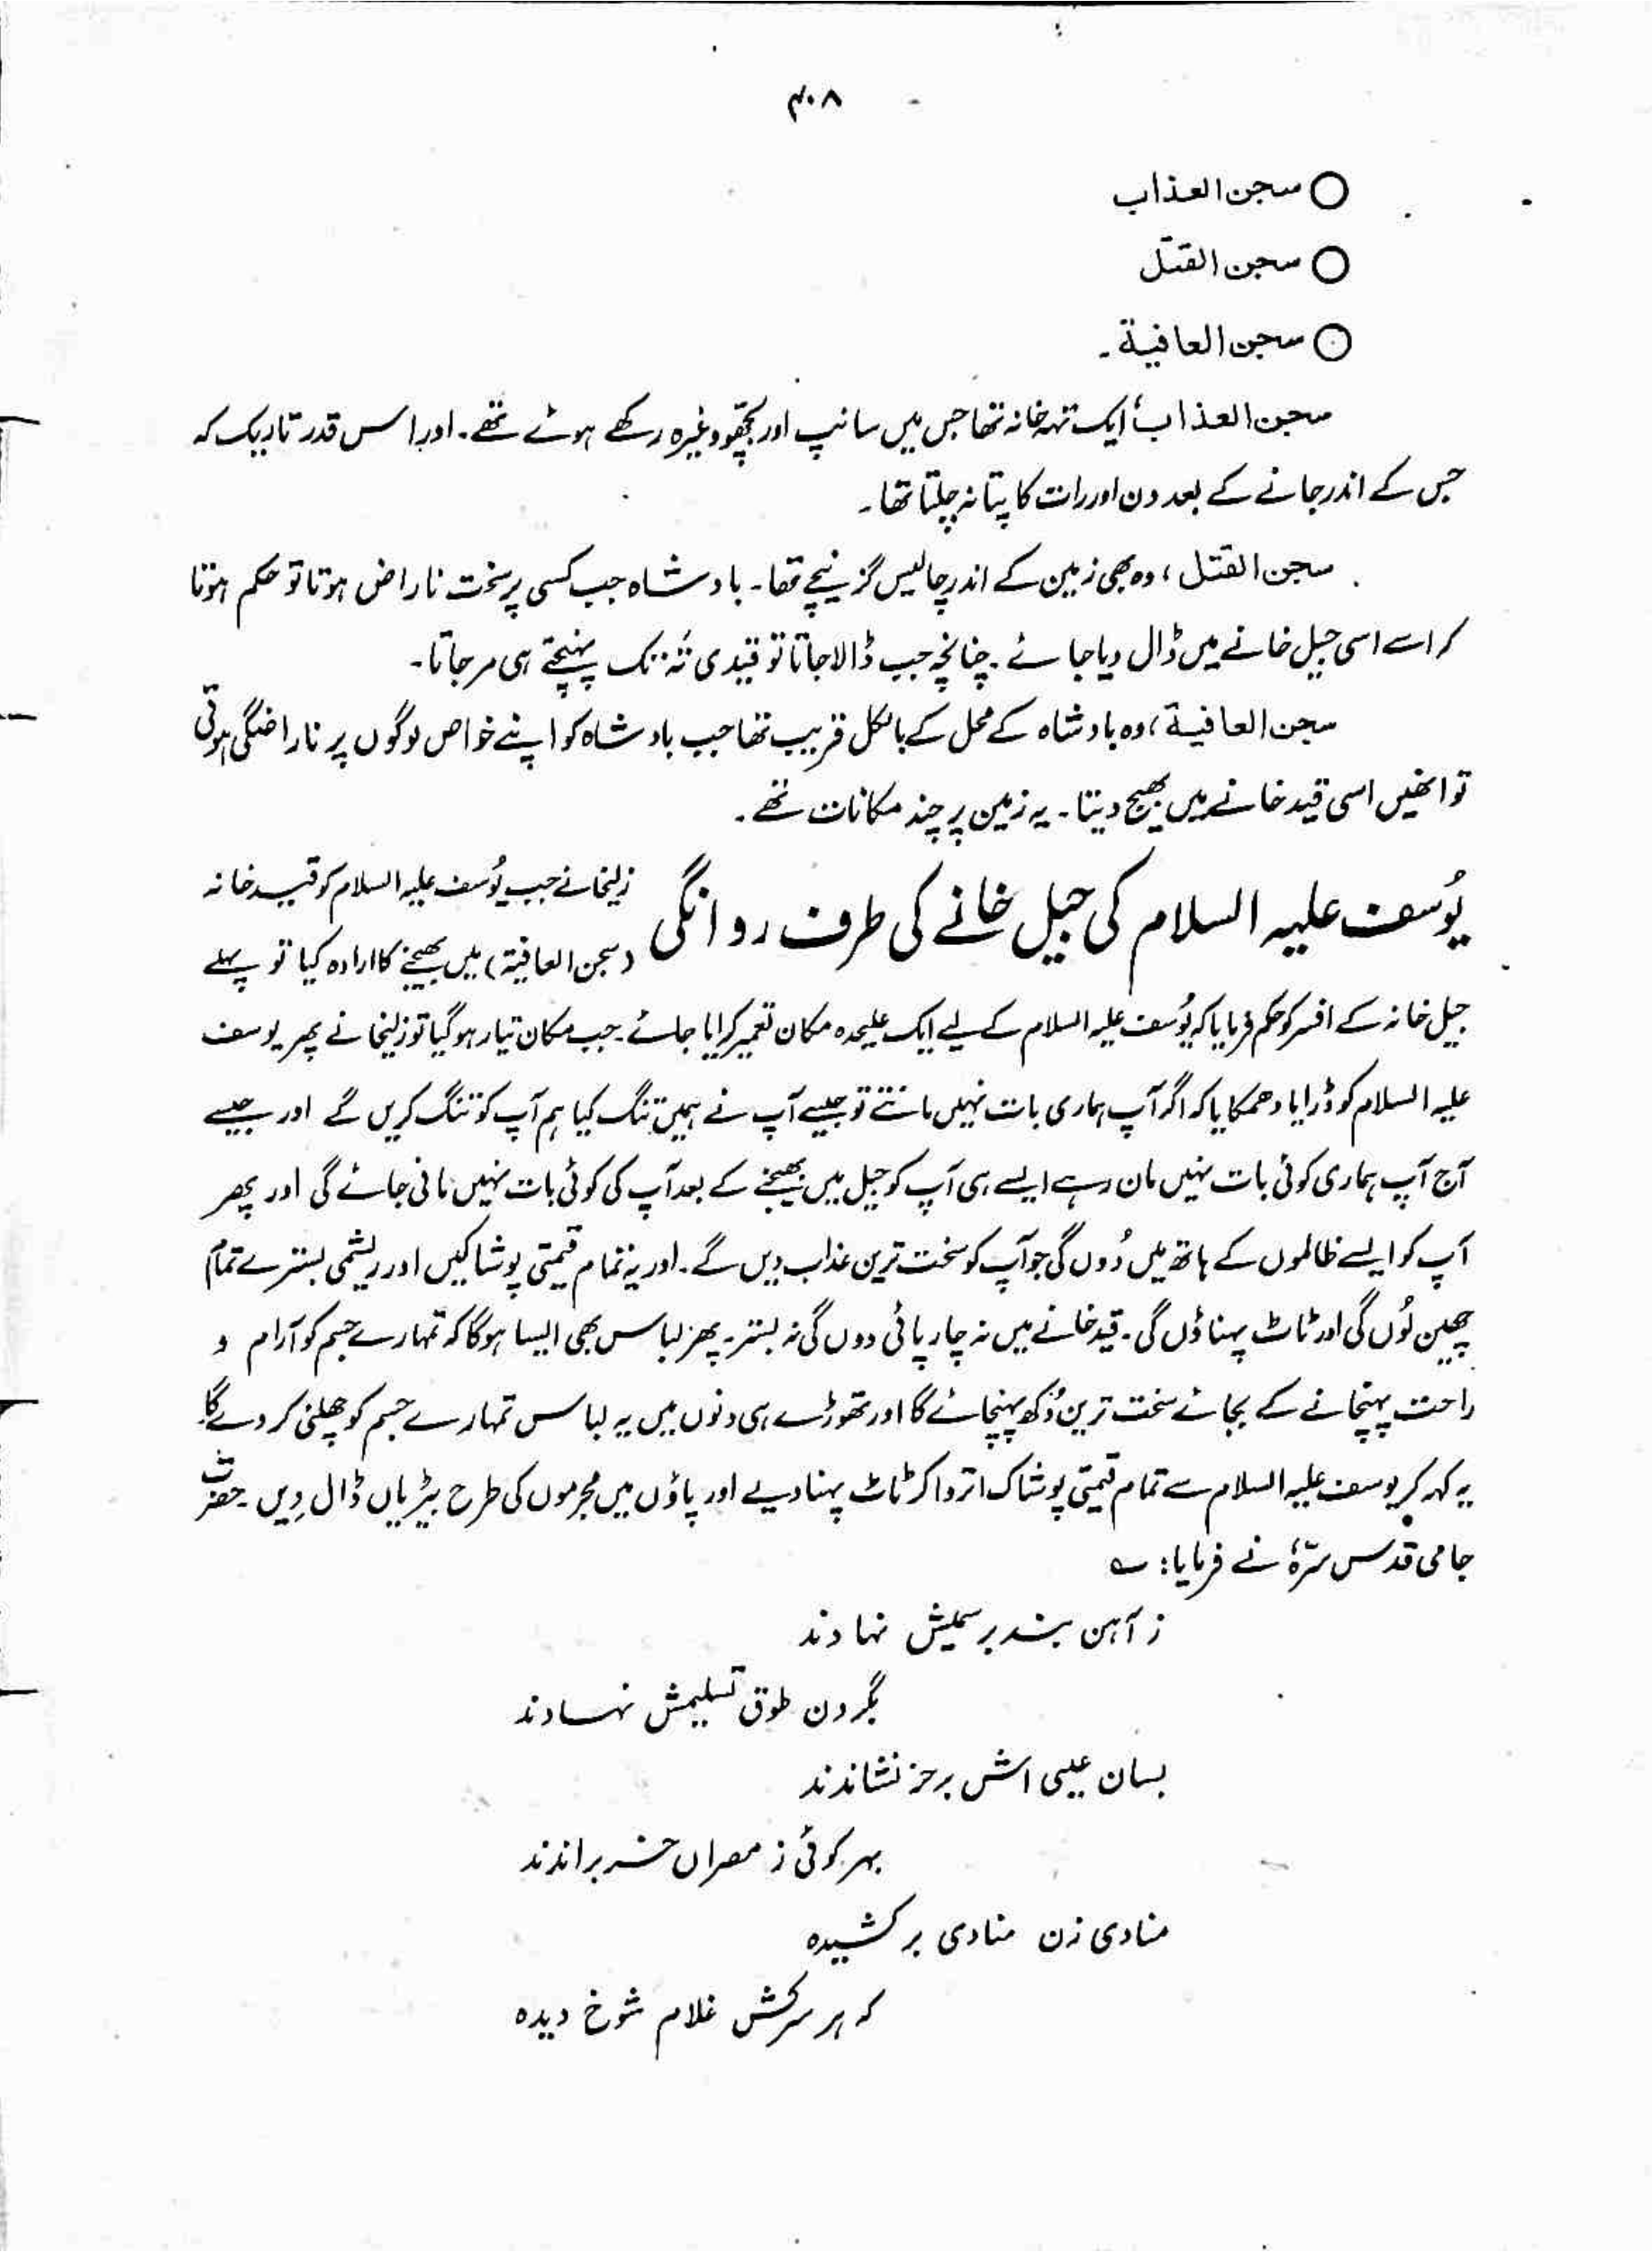 ۴۰۸
○ سجن العذاب
○ سجن القتل
○ سجن العافیۃ ۔
سجن العذاب، ایک تہہ خانہ تھا جس میں سانپ اور بچھو وغیرہ رکھے ہوئے تھے۔ اور اس قدر تاریک کہ
جس کے اندر جانے کے بعد دن اور رات کا پتا نہ چلتا تھا۔
سجن القتل، وہ بھی زمین کے اندر چالیس گز نیچے تھا۔ بادشاہ جب کسی پر سخت ناراض ہوتا تو حکم ہوتا
کہ اسے اسی جیل خانے میں ڈال دیا جائے۔ چنانچہ جب ڈالا جاتا تو قیدی تَہ تک پہنچتے ہی مر جاتا۔
سجن العافیۃ، وہ بادشاہ کے محل کے بالکل قریب تھا جب بادشاہ کو اپنے خواص لوگوں پر ناراضگی ہوتی
تو انھیں اسی قید خانے میں بھیج دیتا۔ یہ زمین پر چند مکانات تھے۔
یُوسف علیہ السلام کی جیل خانے کی طرف روانگی
زلیخا نے جب یُوسف علیہ السلام کو قید خانہ
(سجن العافیۃ) میں بھیجنے کا ارادہ کیا تو پہلے
جیل خانہ کے افسر کو حکم فرمایا کہ یُوسف علیہ السلام کے لیے ایک علیحدہ مکان تعمیر کرایا جائے۔ جب مکان تیار ہو گیا تو زلیخا نے پھر یوسف
علیہ السلام کو ڈرایا دھمکایا کہ اگر آپ ہماری بات نہیں مانتے تو جیسے آپ نے ہمیں تنگ کیا ہم آپ کو تنگ کریں گے اور جیسے
آج آپ ہماری کوئی بات نہیں مان رہے ایسے ہی آپ کو جیل میں بھیجنے کے بعد آپ کی کوئی بات نہیں مانی جائے گی اور پھر
آپ کو ایسے ظالموں کے ہاتھ میں دُوں گی جو آپ کو سخت ترین عذاب دیں گے۔ اور یہ تمام قیمتی پوشاکیں اور ریشمی بسترے تمام
چھین لُوں گی اور ٹاٹ پہناؤں گی۔ قید خانے میں نہ چارپائی دوں گی نہ بستر۔ پھر لباس بھی ایسا ہوگا کہ تمہارے جسم کو آرام و
راحت پہنچانے کے بجائے سخت ترین دُکھ پہنچائے گا اور تھوڑے ہی دنوں میں یہ لباس تمہارے جسم کو چھلنی کر دے گا۔
یہ کہہ کر یوسف علیہ السلام سے تمام قیمتی پوشاک اتروا کر ٹاٹ پہنا دیے اور پاؤں میں مجرموں کی طرح بیڑیاں ڈال دِیں۔ حضرت
جامی قدس سرّہٗ نے فرمایا: ؎
ز آہن بند بر سیمش نہادند
بگردن طوق تسلیمش نہادند
بسان عیسی اش بر خر نشاندند
بہر کوئی ز مصراں خر براندند
منادی زن منادی بر کشیدہ
کہ ہر سرکش غلام شوخ دیدہ